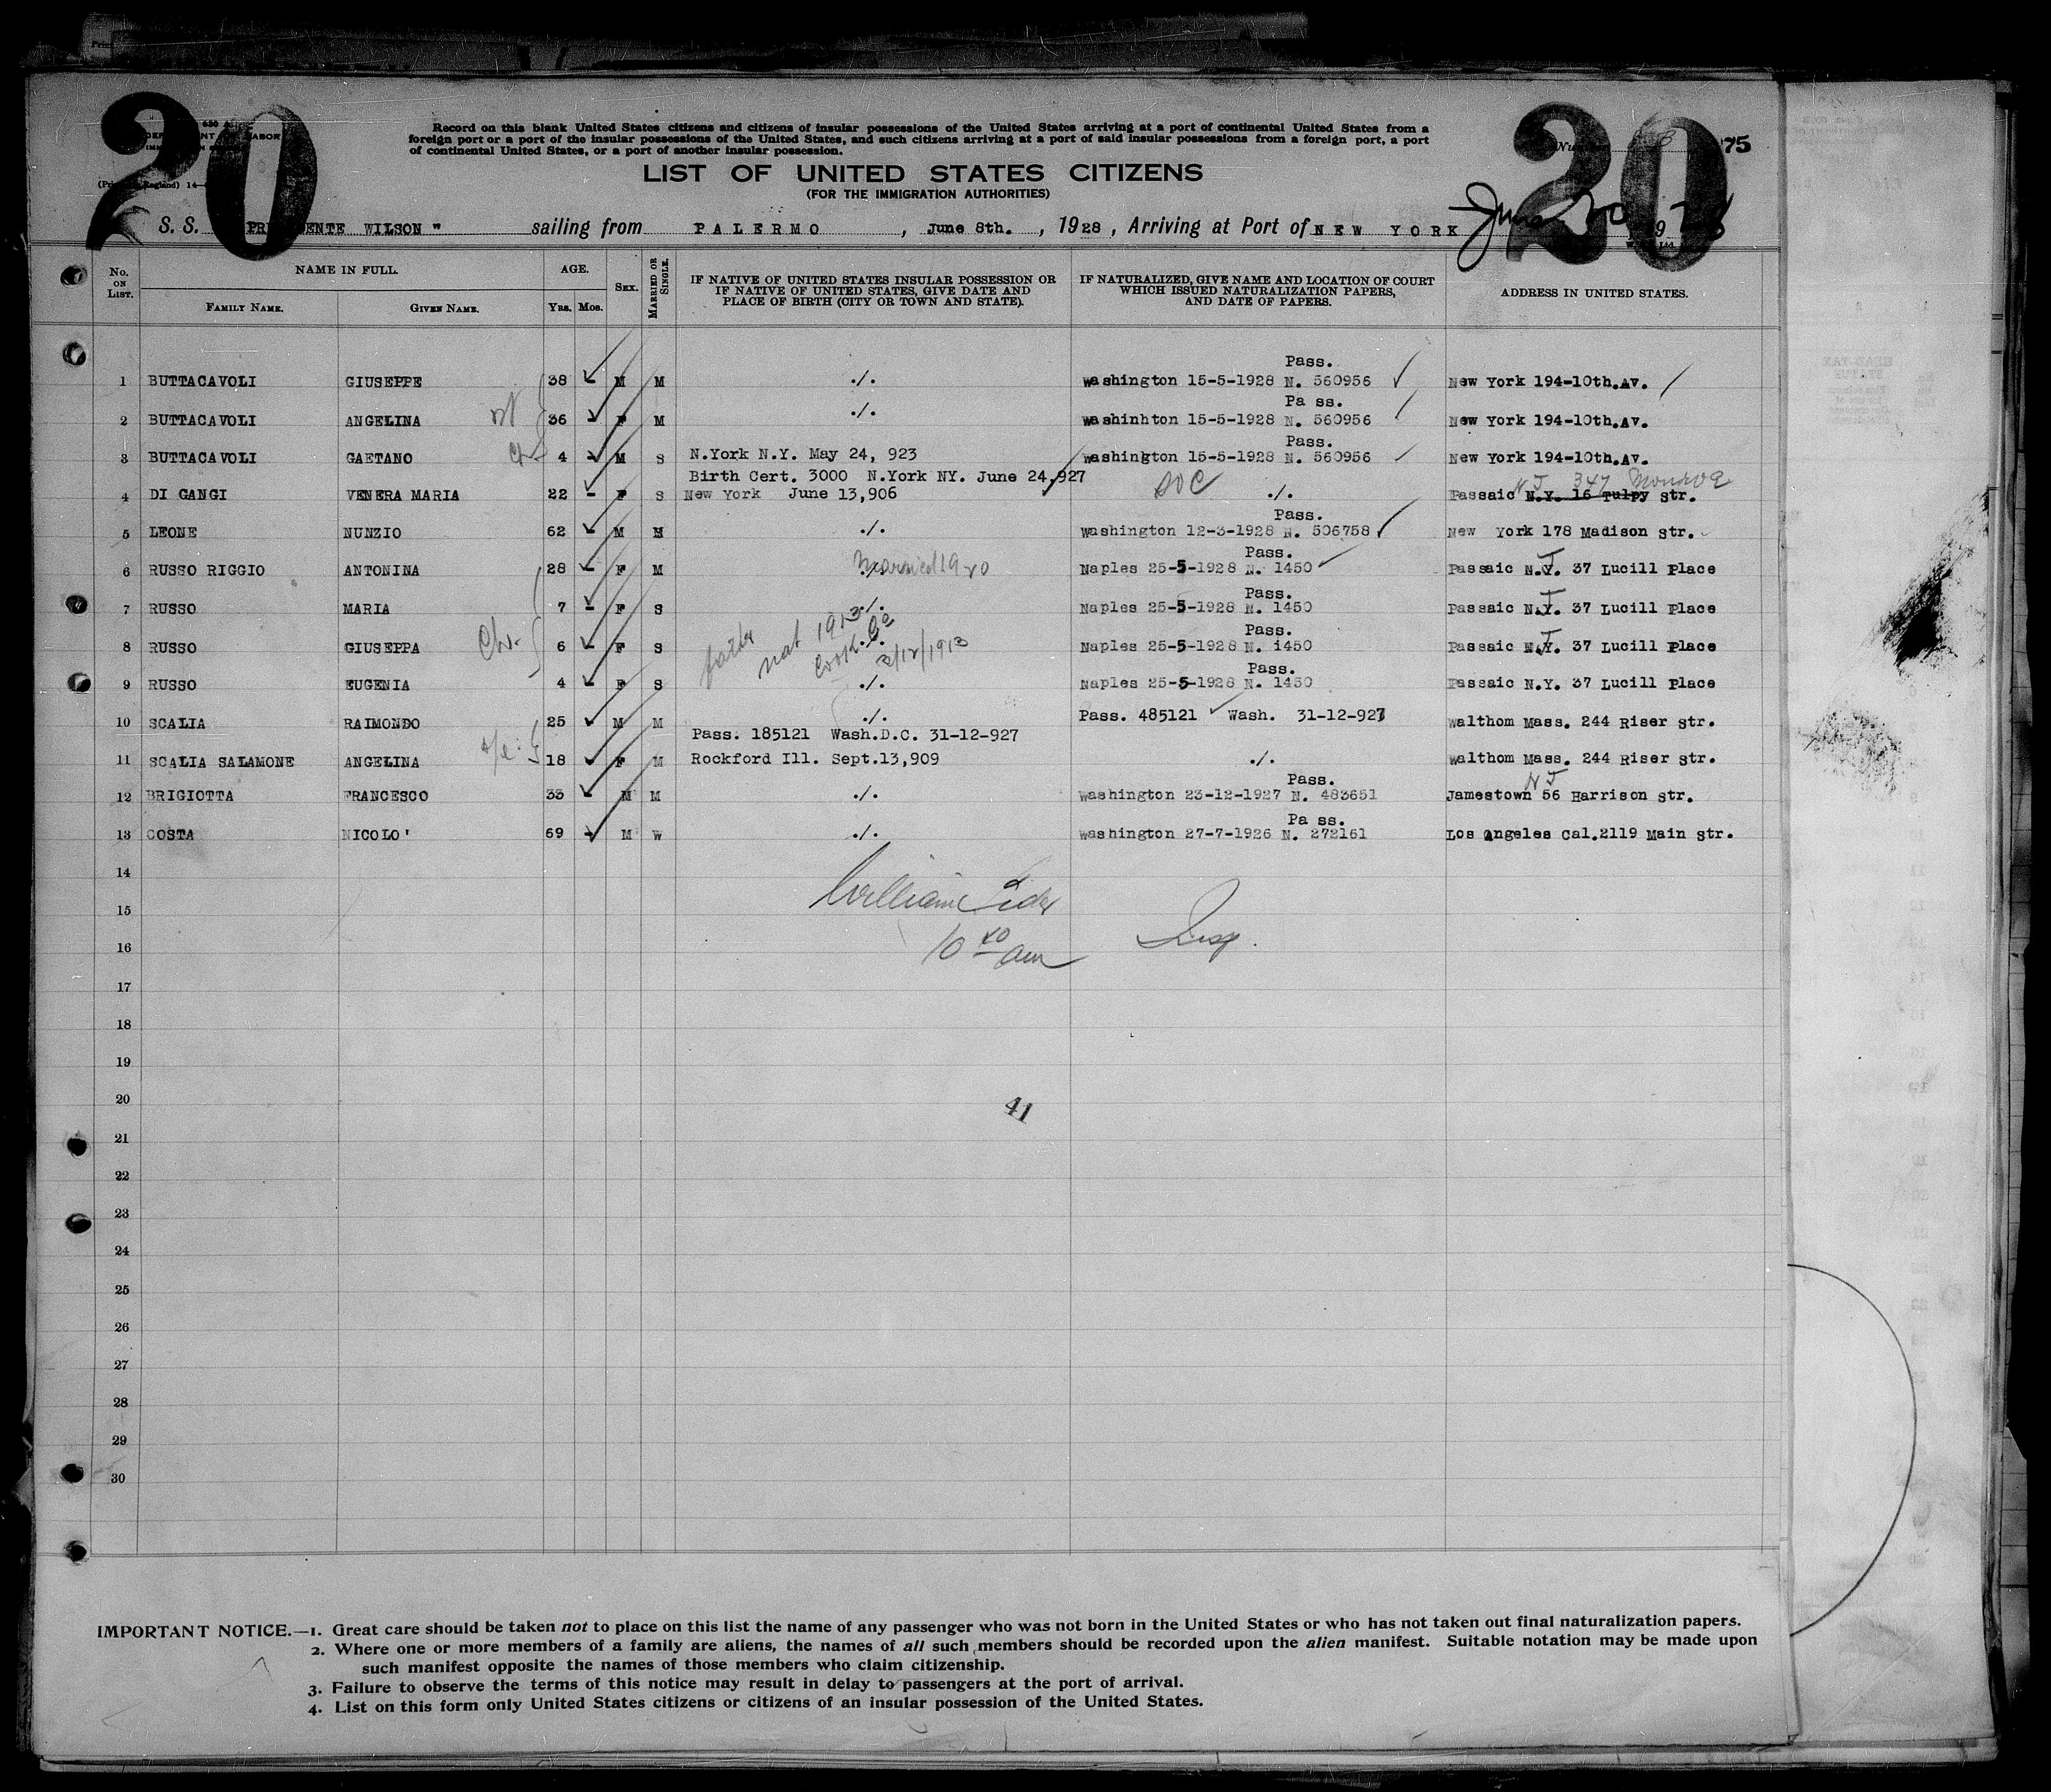 20
20
75
Record on this blank United States citizens and citizens of insular possessions of the United States arriving at a port of continental United States from a
foreign port or a port of the insular possessions of the United States, and such citizens arriving at a port of said insular possessions from a foreign port, a port
of continental United States, or a port of another insular possession.
LIST OF UNITED STATES CITIZENS
(FOR THE IMMIGRATION AUTHORITIES)
S. S. PRESIDENTE WILSON" sailing from PALERMO, June 8th., 1928, Arriving at Port of NEW YORK June 20 1928
No. ON LIST. NAME IN FULL. AGE. SEX. MARRIED OR SINGLE. IF NATIVE OF UNITED STATES INSULAR POSSESSION OR IF NATIVE OF UNITED STATES, GIVE DATE AND PLACE OF BIRTH (CITY OR TOWN AND STATE). IF NATURALIZED, GIVE NAME AND LOCATION OF COURT WHICH ISSUED NATURALIZATION PAPERS, AND DATE OF PAPERS. ADDRESS IN UNITED STATES.
FAMILY NAME. GIVEN NAME. YRS. MOS.
Pass.
1 BUTTACAVOLI GIUSEPPE 38 - M M ./. Washington 15-5-1928 N. 560956 New York 194-10th.Av.
Pa ss.
2 BUTTACAVOLI ANGELINA 36 - F M ./. Washinhton 15-5-1928 N. 560956 New York 194-10th.Av.
Pass.
3 BUTTACAVOLI GAETANO 4 - M S N.York N.Y. May 24, 923 Washington 15-5-1928 N. 560956 New York 194-10th.Av.
Birth Cert. 3000 N.York NY. June 24,927
4 DI GANGI VENERA MARIA 22 - F S New York June 13,906 ./. Passaic N.Y. 16 Tulpy Str. NJ 347 Monroe
Pass.
5 LEONE NUNZIO 62 - M M ./. Washington 12-3-1928 N. 506758 New York 178 Madison Str.
Pass.
6 RUSSO RIGGIO ANTONINA 28 - F M ./. Married 1920 Naples 25-5-1928 N. 1450 Passaic N.J. 37 Lucill Place
Pass.
7 RUSSO MARIA 7 - F S ./. Naples 25-5-1928 N. 1450 Passaic N.J. 37 Lucill Place
Pass.
8 RUSSO GIUSEPPA 6 - F S ./. Naples 25-5-1928 N. 1450 Passaic N.J. 37 Lucill Place
father nat 1913
Cook Co
3/12/1913
Pass.
9 RUSSO EUGENIA 4 - F S ./. Naples 25-5-1928 N. 1450 Passaic N.Y. 37 Lucill Place
10 SCALIA RAIMONDO 25 - M M ./. Pass. 485121 Wash. 31-12-927 Walthom Mass. 244 Riser Str.
Pass. 185121 Wash.D.C. 31-12-927
11 SCALIA SALAMONE ANGELINA 18 - F M Rockford Ill. Sept.13,909 ./. Walthom Mass. 244 Riser Str.
Pass.
12 BRIGIOTTA FRANCESCO 33 - M M ./. Washington 23-12-1927 N. 483651 Jamestown NJ 56 Harrison Str.
Pa ss.
13 COSTA NICOLO' 69 - M W ./. Washington 27-7-1926 N. 272161 Los Angeles Cal.2119 Main Str.
14
15
William
16
10 20 am Insp.
17
18
19
20
41
21
22
23
24
25
26
27
28
29
30
IMPORTANT NOTICE.—1. Great care should be taken not to place on this list the name of any passenger who was not born in the United States or who has not taken out final naturalization papers.
2. Where one or more members of a family are aliens, the names of all such members should be recorded upon the alien manifest. Suitable notation may be made upon
such manifest opposite the names of those members who claim citizenship.
3. Failure to observe the terms of this notice may result in delay to passengers at the port of arrival.
4. List on this form only United States citizens or citizens of an insular possession of the United States.